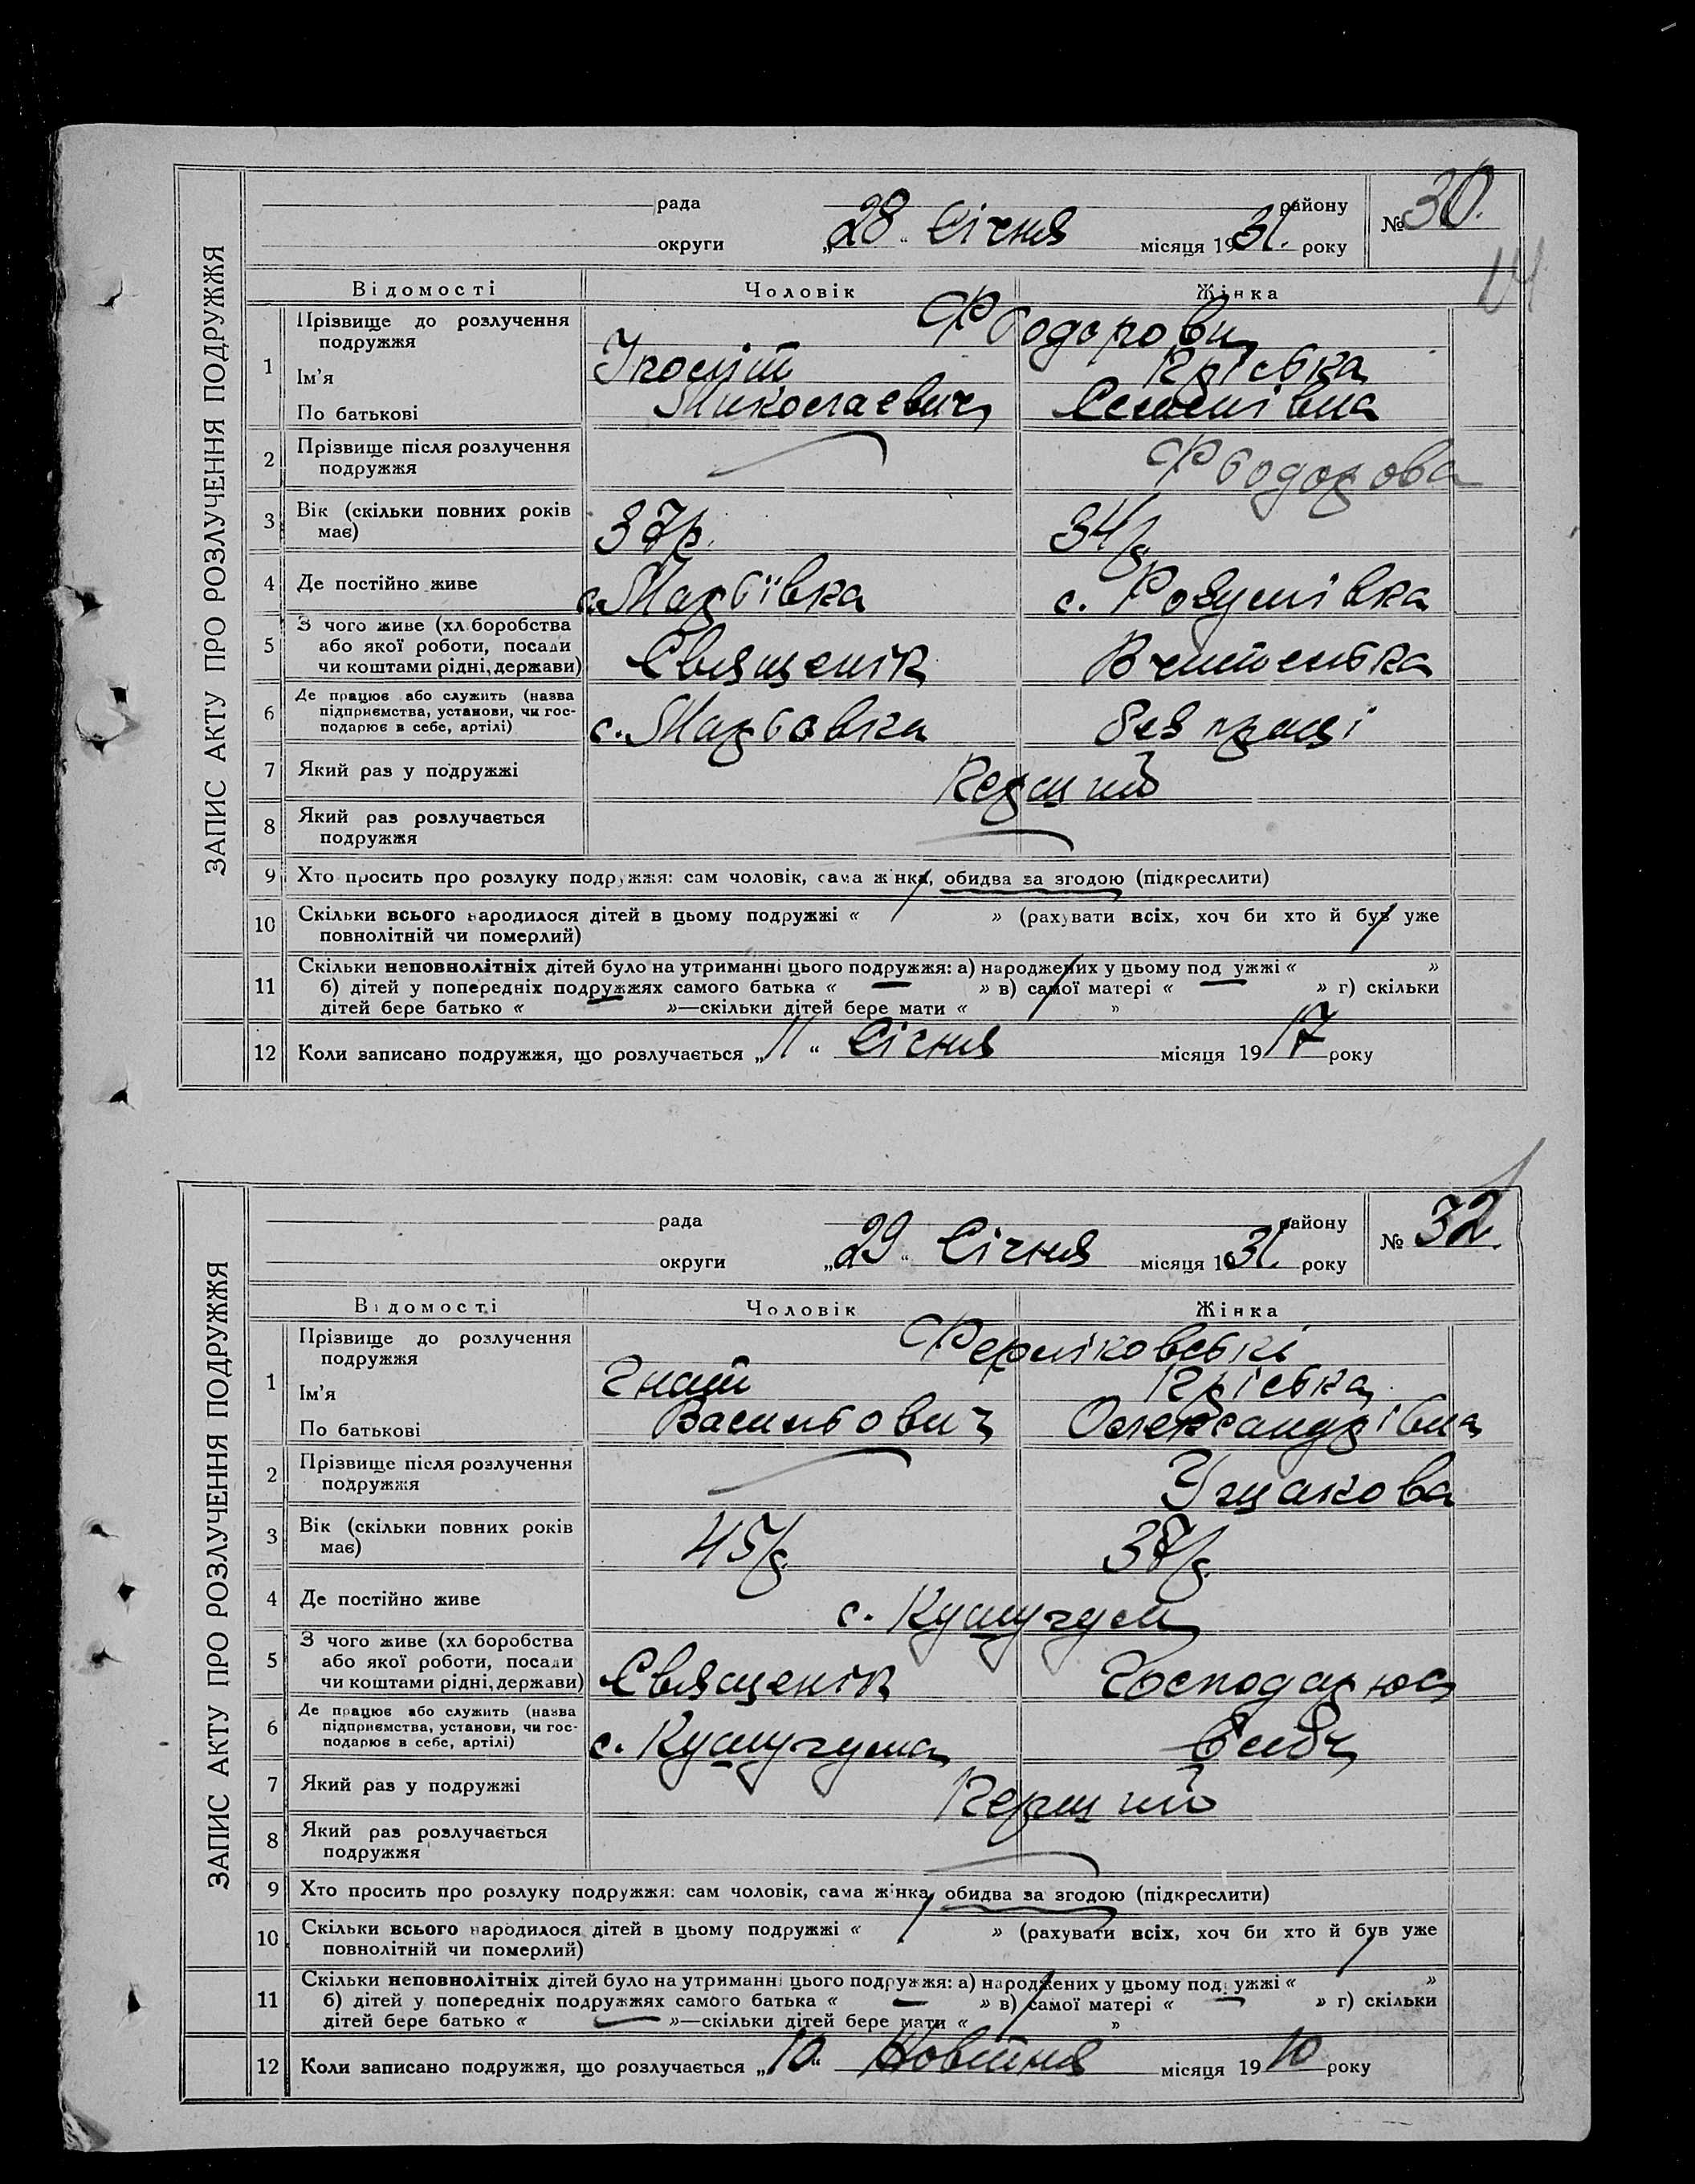 ЗАПИС АКТУ ПРО РОЗЛУЧЕННЯ ПОДРУЖЖЯ
рада району № 30.
округи „28“ Січня місяця 1931. року
14
Відомості Чоловік Жінка
1 Прізвище до розлучення Фьодорови
подружжя
Ім'я Іполіт Крістка
По батькові Миколаєвич Семенівна
2 Прізвище після розлучення Фьодорова
подружжя
3 Вік (скільки повних років 37р. 34р
має)
4 Де постійно живе с. с. Розумівка
5 З чого живе (хліборобства
або якої роботи, посади Священік Вчителька
чи коштами рідні, держави)
6 Де працює або служить (назва
підприємства, установи, чи гос- с. без праці
подарює в себе, артілі)
7 Який раз у подружжі Перший
8 Який раз розлучається
подружжя
9 Хто просить про розлуку подружжя: сам чоловік, сама жінка, обидва за згодою (підкреслити)
10 Скільки всього народилося дітей в цьому подружжі « » (рахувати всіх, хоч би хто й був уже
повнолітній чи померлий)
11 Скільки неповнолітніх дітей було на утриманні цього подружжя: а) народжених у цьому подружжі « »
б) дітей у попередніх подружжях самого батька « — » в) самої матері « — » г) скільки
дітей бере батько « »—скільки дітей бере мати « »
12 Коли записано подружжя, що розлучається „11“ Січня місяця 1917 року
ЗАПИС АКТУ ПРО РОЗЛУЧЕННЯ ПОДРУЖЖЯ
рада району № 32.
округи „29“ Січня місяця 1931. року
Відомості Чоловік Жінка
1 Прізвище до розлучення Ферліковські
подружжя
Ім'я Гнат
По батькові Васильович Олександрівна
2 Прізвище після розлучення Ушакова
подружжя
3 Вік (скільки повних років 45р. 37р.
має)
4 Де постійно живе с. Кушугум
5 З чого живе (хліборобства
або якої роботи, посади Священік Господарює
чи коштами рідні, держави)
6 Де працює або служить (назва
підприємства, установи, чи гос- с. Кушугума в себе
подарює в себе, артілі)
7 Який раз у подружжі Перший
8 Який раз розлучається
подружжя
9 Хто просить про розлуку подружжя: сам чоловік, сама жінка, обидва за згодою (підкреслити)
10 Скільки всього народилося дітей в цьому подружжі « » (рахувати всіх, хоч би хто й був уже
повнолітній чи померлий)
11 Скільки неповнолітніх дітей було на утриманні цього подружжя: а) народжених у цьому подружжі « »
б) дітей у попередніх подружжях самого батька « — » в) самої матері « — » г) скільки
дітей бере батько « — »—скільки дітей бере мати « »
12 Коли записано подружжя, що розлучається „10“ Новітня місяця 1910 року